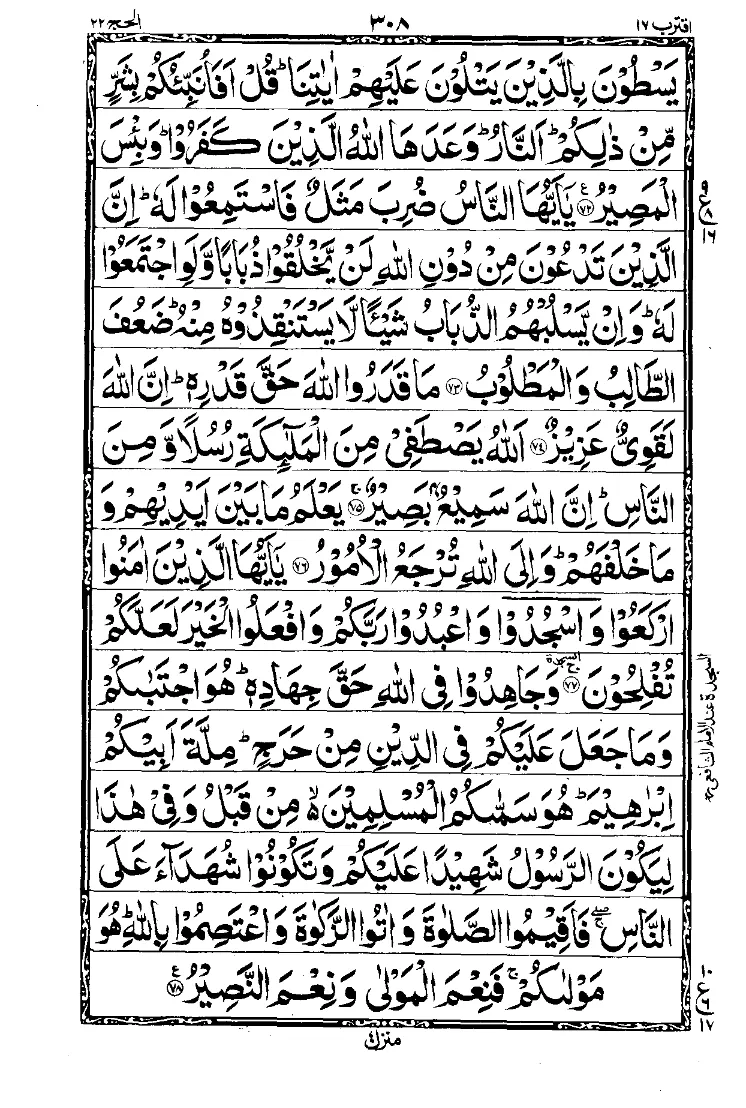 اقترب ١٦
٣٠٨
الحج ٢٢
يَسْطُوْنَ بِالَّذِيْنَ يَتْلُوْنَ عَلَيْهِمْ اٰيٰتِنَا ؕ قُلْ اَفَاُنَبِّئُكُمْ بِشَرٍّ
مِّنْ ذٰلِكُمْ ؕ اَلنَّارُ ؕ وَعَدَهَا اللّٰهُ الَّذِيْنَ كَفَرُوْا ؕ وَبِئْسَ
الْمَصِيْرُ ﴿٧٢﴾ يٰۤاَيُّهَا النَّاسُ ضُرِبَ مَثَلٌ فَاسْتَمِعُوْا لَهٗ ؕ اِنَّ
الَّذِيْنَ تَدْعُوْنَ مِنْ دُوْنِ اللّٰهِ لَنْ يَّخْلُقُوْا ذُبَابًا وَّلَوِ اجْتَمَعُوْا
لَهٗ ؕ وَاِنْ يَّسْلُبْهُمُ الذُّبَابُ شَيْئًا لَّا يَسْتَنْقِذُوْهُ مِنْهُ ؕ ضَعُفَ
الطَّالِبُ وَالْمَطْلُوْبُ ﴿٧٣﴾ مَا قَدَرُوا اللّٰهَ حَقَّ قَدْرِهٖ ؕ اِنَّ اللّٰهَ
لَقَوِيٌّ عَزِيْزٌ ﴿٧٤﴾ اَللّٰهُ يَصْطَفِيْ مِنَ الْمَلٰٓئِكَةِ رُسُلًا وَّمِنَ
النَّاسِ ؕ اِنَّ اللّٰهَ سَمِيْعٌۢ بَصِيْرٌ ۚ﴿٧٥﴾ يَعْلَمُ مَا بَيْنَ اَيْدِيْهِمْ وَ
مَا خَلْفَهُمْ ؕ وَاِلَى اللّٰهِ تُرْجَعُ الْاُمُوْرُ ﴿٧٦﴾ يٰۤاَيُّهَا الَّذِيْنَ اٰمَنُوا
ارْكَعُوْا وَاسْجُدُوْا وَاعْبُدُوْا رَبَّكُمْ وَافْعَلُوا الْخَيْرَ لَعَلَّكُمْ
تُفْلِحُوْنَ ۚ السجدة ﴿٧٧﴾ وَجَاهِدُوْا فِي اللّٰهِ حَقَّ جِهَادِهٖ ؕ هُوَ اجْتَبٰىكُمْ
وَمَا جَعَلَ عَلَيْكُمْ فِي الدِّيْنِ مِنْ حَرَجٍ ؕ مِلَّةَ اَبِيْكُمْ
اِبْرٰهِيْمَ ؕ هُوَ سَمّٰىكُمُ الْمُسْلِمِيْنَ ۙ۬ مِنْ قَبْلُ وَفِيْ هٰذَا
لِيَكُوْنَ الرَّسُوْلُ شَهِيْدًا عَلَيْكُمْ وَتَكُوْنُوْا شُهَدَآءَ عَلَى
النَّاسِ ۖۚ فَاَقِيْمُوا الصَّلٰوةَ وَاٰتُوا الزَّكٰوةَ وَاعْتَصِمُوْا بِاللّٰهِ ؕ هُوَ
مَوْلٰىكُمْ ۚ فَنِعْمَ الْمَوْلٰى وَنِعْمَ النَّصِيْرُ ﴿٧٨﴾
السجدة عند الامام الشافعي
منزل ٤